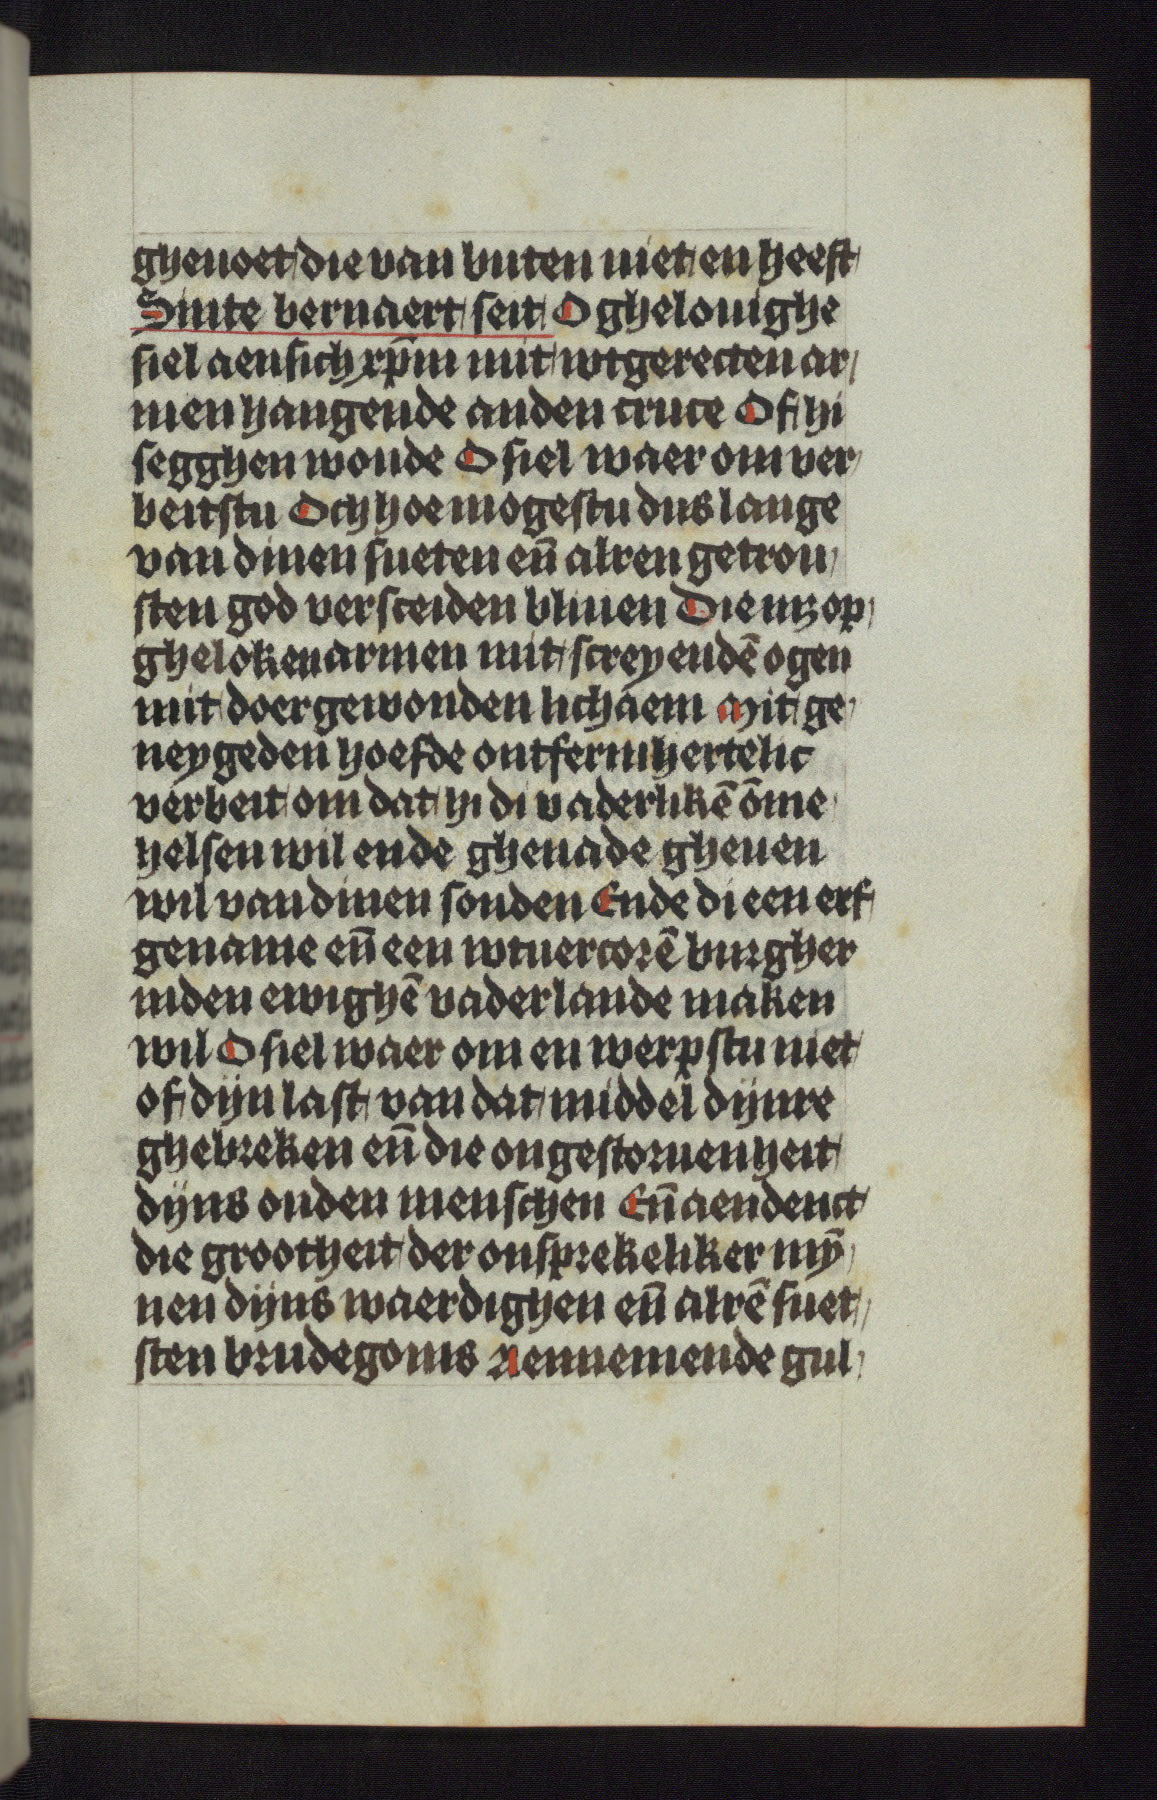 ghenoet die van buten niet en heeft
Sinte bernaert seit O ghelouighe
siel aensich xp̄m mit wtgerecten ar
men hangende anden cruce Of hi
segghen woude O siel waer om ver
beitstu Och hoe mogestu dus lange
van dinen sueten eñ alren getrou
sten god versceiden bliuen Die mz op
gheloken armen mit screyendē ogen
mit doergewonden lichaem Mit ge
neygeden hoefde ontfermhertelic
verbeit om dat hi di vaderlikē ōme
helsen wil ende ghenade gheuen
wil van dinen sonden Ende di een erf
gename eñ een wtuercorē burgher
inden ewighē vaderlande maken
wil O siel waer om en werpstu niet
of dijn last van dat middel dijnre
ghebreken eñ die ongestoruenheit
dijns ouden menschen Eñ aendenct
die grootheit der onsprekeliker mȳ
nen dijns waerdighen eñ alrē suet
sten brudegoms Aennemende gul